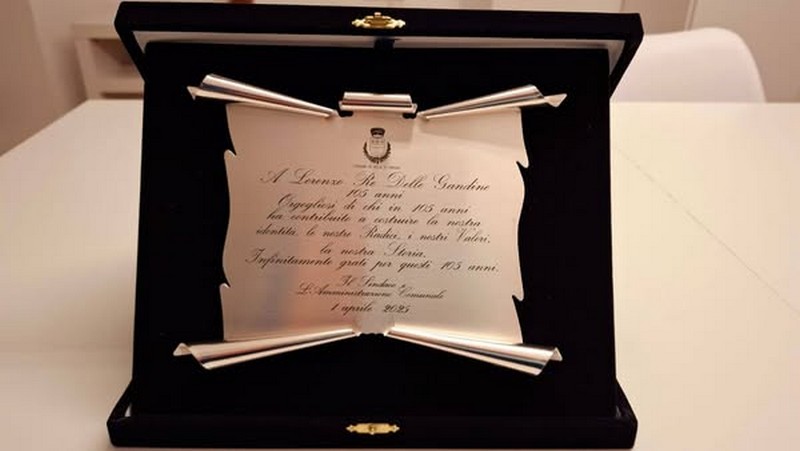 A Lorenzo Re Delle Gandine
105 anni
Orgogliosi di chi in 105 anni
ha contribuito a costruire la nostra
identità, le nostre Radici, i nostri Valori,
la nostra Storia.
Infinitamente grati per questi 105 anni.
Il Sindaco e
L'Amministrazione Comunale
1 aprile 2025